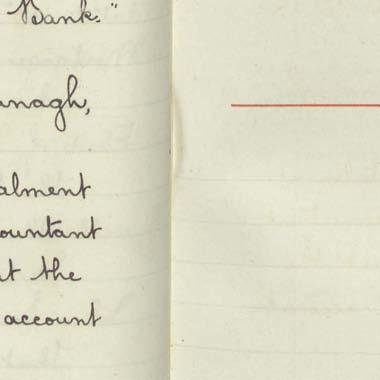 Bank."
anagh,
alment
ountant
at the
account